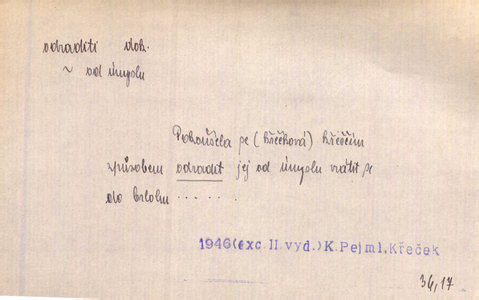 odraditi dok.
~ od úmyslu
Pokoušela se (křečková) křeččím
způsobem odradit jej od úmyslu vrátit se
do brlohu . . . . . .
1946(exc. II. vyd.) K. Pejml, Křeček
36,17